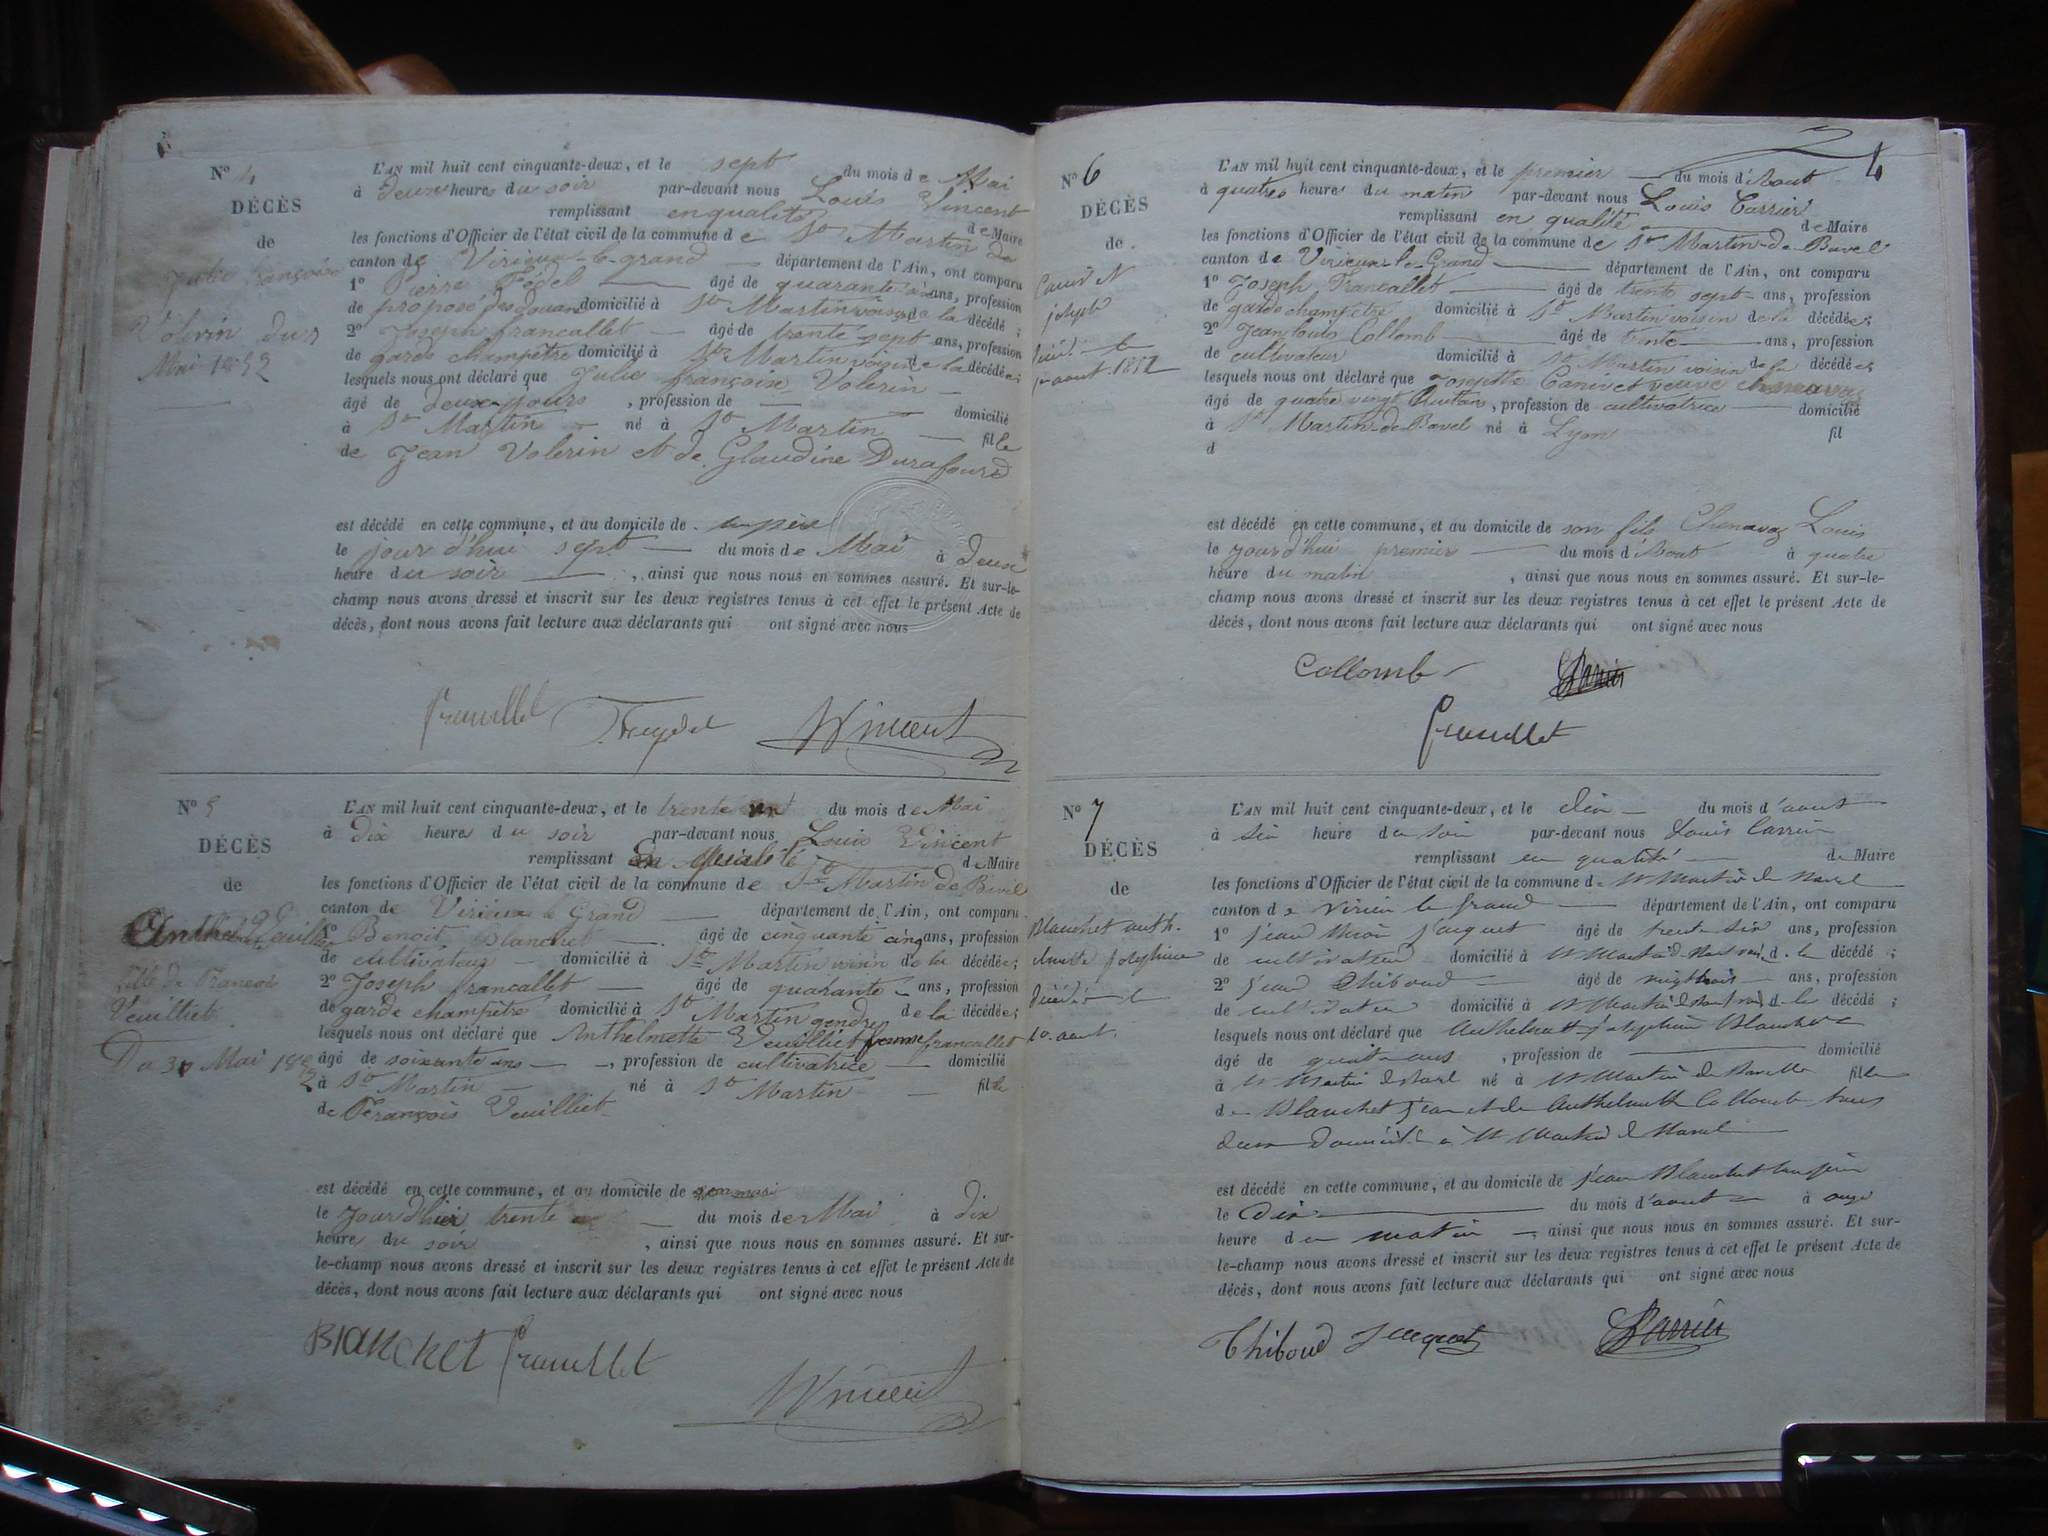 N° 4
DÉCÈS
de
Julie françoise
Volerin du 7
Mai 1852
L'AN mil huit cent cinquante-deux, et le sept du mois de Mai
à deux heures du soir par-devant nous Louis Vincent
remplissant en qualité de Maire
les fonctions d'Officier de l'état civil de la commune de St Martin de
canton de Virieux-le-grand département de l'Ain, ont comparu
1° Pierre Fédel âgé de quarante ans, profession
de préposé des douan domicilié à St Martin voisin de la décédé ;
2° Joseph francallet âgé de trente sept ans, profession
de garde champêtre domicilié à St Martin voisin de la décédée ;
lesquels nous ont déclaré que Julie françoise Volerin
âgé de deux jours , profession de domicilié
à St Martin né à St Martin fille
de Jean Volerin et de Glaudine Durafourd
est décédé en cette commune, et au domicile de son père
le jour d'hui sept du mois de Mai à deux
heure du soir , ainsi que nous nous en sommes assuré. Et sur-le-
champ nous avons dressé et inscrit sur les deux registres tenus à cet effet le présent Acte de
décès, dont nous avons fait lecture aux déclarants qui ont signé avec nous
francallet Vincent
N° 5
DÉCÈS
de
Anthel
fille de François
Veuilliet
Du 31 Mai 1852
L'AN mil huit cent cinquante-deux, et le trente un du mois de Mai
à Dix heures du soir par-devant nous Louis Vincent
remplissant En qualité de Maire
les fonctions d'Officier de l'état civil de la commune de St Martin de Bavel
canton de Virieux le Grand département de l'Ain, ont comparu
1° Benoit Blanchet âgé de cinquante cinq ans, profession
de cultivateur domicilié à St Martin voisin de la décédée ;
2° Joseph francallet âgé de quarante ans, profession
de garde champêtre domicilié à St Martin gendre de la décédée ;
lesquels nous ont déclaré que Anthelmette Veuilliet femme francallet
âgé de soixante ans , profession de cultivatrice domicilié
à St Martin né à St Martin fille
de François Veuilliet
est décédé en cette commune, et au domicile de son mari
le jour d'hier trente du mois de Mai à dix
heure du soir , ainsi que nous nous en sommes assuré. Et sur-
le-champ nous avons dressé et inscrit sur les deux registres tenus à cet effet le présent Acte de
décès, dont nous avons fait lecture aux déclarants qui ont signé avec nous
Blanchet francallet
Vincent
4
N° 6
DÉCÈS
de
joseph
décédé le
1er aout 1852
L'AN mil huit cent cinquante-deux, et le premier du mois d'Aout
à quatres heure du matin par-devant nous Louis Carrier
remplissant en qualité de Maire
les fonctions d'Officier de l'état civil de la commune de St Martin-de-Bavel
canton de Virieux-le-Grand département de l'Ain, ont comparu
1° Joseph Francallet âgé de trente sept ans, profession
de garde champêtre domicilié à St Martin voisin de la décédée ;
2° Jean louis Collomb âgé de trente ans, profession
de cultivateur domicilié à St Martin voisin de la décédée ;
lesquels nous ont déclaré que Josephte Canivet veuve chenavaz
âgé de quatre vingt huit ans, profession de cultivatrice domicilié
à St Martin-de-Bavel né à Lyon fil
d
est décédé en cette commune, et au domicile de son fils Chenavaz Louis
le jour d'hui premier du mois d'Aout à quatre
heure du matin , ainsi que nous nous en sommes assuré. Et sur-le-
champ nous avons dressé et inscrit sur les deux registres tenus à cet effet le présent Acte de
décès, dont nous avons fait lecture aux déclarants qui ont signé avec nous
Collomb Carrier
francallet
N° 7
DÉCÈS
de
Blanchet anth.
elmette josephine
décédée le
10 aout
L'AN mil huit cent cinquante-deux, et le dix du mois d'aout
à six heure du soir par-devant nous Louis Carrier
remplissant en qualité de Maire
les fonctions d'Officier de l'état civil de la commune de St Martin de Bavel
canton de Virieu le grand département de l'Ain, ont comparu
1° jean jacquet âgé de trente six ans, profession
de cultivateur domicilié à St Martin de Bavel voi. d. la décédé ;
2° jean Thiboud âgé de vingt trois ans, profession
de cultivateur domicilié à St Martin de Bavel voi. d. la décédé ;
lesquels nous ont déclaré que Anthelmette josephine Blanchet
âgé de quatre ans , profession de domicilié
à St Martin de Bavel né à St Martin de Bavel fille
de Blanchet jean et de Anthelmette Collomb tous
deux Domicilié à St Martin de Bavel
est décédé en cette commune, et au domicile de jean Blanchet son père
le Dix du mois d'aout à onze
heure du matin , ainsi que nous nous en sommes assuré. Et sur-
le-champ nous avons dressé et inscrit sur les deux registres tenus à cet effet le présent Acte de
décès, dont nous avons fait lecture aux déclarants qui ont signé avec nous
Thiboud Jacquet Carrier